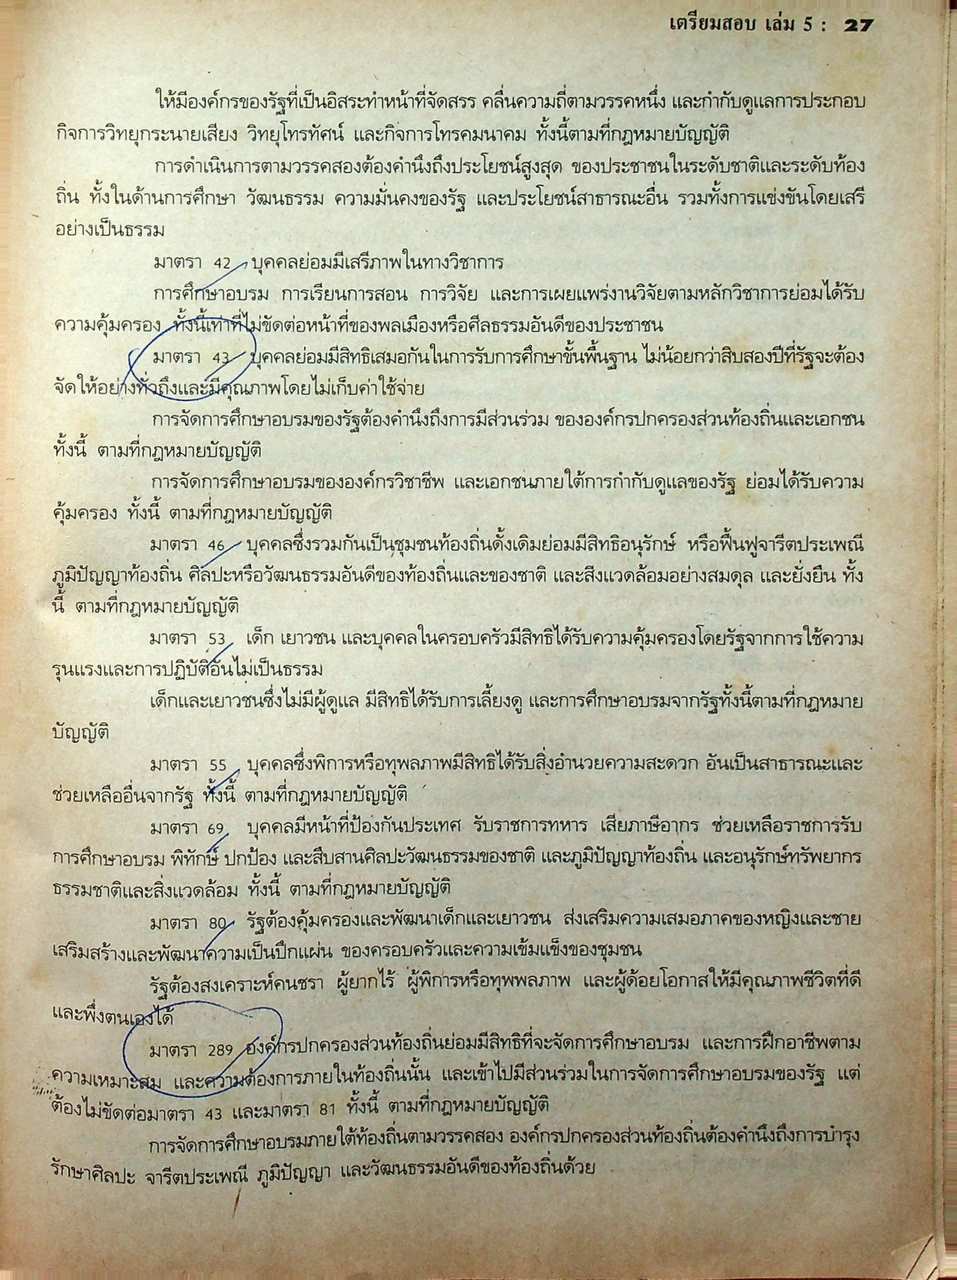 เตรียมสอบ เล่ม 5 : 27
ให้มีองค์กรของรัฐที่เป็นอิสระทำหน้าที่จัดสรร คลื่นความถี่ตามวรรคหนึ่ง และกำกับดูแลการประกอบ
กิจการวิทยุกระจายเสียง วิทยุโทรทัศน์ และกิจการโทรคมนาคม ทั้งนี้ตามที่กฎหมายบัญญัติ
การดำเนินการตามวรรคสองต้องคำนึงถึงประโยชน์สูงสุด ของประชาชนในระดับชาติและระดับท้อง
ถิ่น ทั้งในด้านการศึกษา วัฒนธรรม ความมั่นคงของรัฐ และประโยชน์สาธารณะอื่น รวมทั้งการแข่งขันโดยเสรี
อย่างเป็นธรรม
มาตรา 42 บุคคลย่อมมีเสรีภาพในทางวิชาการ
การศึกษาอบรม การเรียนการสอน การวิจัย และการเผยแพร่งานวิจัยตามหลักวิชาการย่อมได้รับ
ความคุ้มครอง ทั้งนี้เท่าที่ไม่ขัดต่อหน้าที่ของพลเมืองหรือศีลธรรมอันดีของประชาชน
มาตรา 43 บุคคลย่อมมีสิทธิเสมอกันในการรับการศึกษาขั้นพื้นฐาน ไม่น้อยกว่าสิบสองปีที่รัฐจะต้อง
จัดให้อย่างทั่วถึงและมีคุณภาพโดยไม่เก็บค่าใช้จ่าย
การจัดการศึกษาอบรมของรัฐต้องคำนึงถึงการมีส่วนร่วม ขององค์กรปกครองส่วนท้องถิ่นและเอกชน
ทั้งนี้ ตามที่กฎหมายบัญญัติ
การจัดการศึกษาอบรมขององค์กรวิชาชีพ และเอกชนภายใต้การกำกับดูแลของรัฐ ย่อมได้รับความ
คุ้มครอง ทั้งนี้ ตามที่กฎหมายบัญญัติ
มาตรา 46 บุคคลซึ่งรวมกันเป็นชุมชนท้องถิ่นดั้งเดิมย่อมมีสิทธิอนุรักษ์ หรือฟื้นฟูจารีตประเพณี
ภูมิปัญญาท้องถิ่น ศิลปะหรือวัฒนธรรมอันดีของท้องถิ่นและของชาติ และสิ่งแวดล้อมอย่างสมดุล และยั่งยืน ทั้ง
นี้ ตามที่กฎหมายบัญญัติ
มาตรา 53 เด็ก เยาวชน และบุคคลในครอบครัวมีสิทธิได้รับความคุ้มครองโดยรัฐจากการใช้ความ
รุนแรงและการปฏิบัติอันไม่เป็นธรรม
เด็กและเยาวชนซึ่งไม่มีผู้ดูแล มีสิทธิได้รับการเลี้ยงดู และการศึกษาอบรมจากรัฐทั้งนี้ตามที่กฎหมาย
บัญญัติ
มาตรา 55 บุคคลซึ่งพิการหรือทุพลภาพมีสิทธิได้รับสิ่งอำนวยความสะดวก อันเป็นสาธารณะและ
ช่วยเหลืออื่นจากรัฐ ทั้งนี้ ตามที่กฎหมายบัญญัติ
มาตรา 69 บุคคลมีหน้าที่ป้องกันประเทศ รับราชการทหาร เสียภาษีอากร ช่วยเหลือราชการรับ
การศึกษาอบรม พิทักษ์ ปกป้อง และสืบสานศิลปะวัฒนธรรมของชาติ และภูมิปัญญาท้องถิ่น และอนุรักษ์ทรัพยากร
ธรรมชาติและสิ่งแวดล้อม ทั้งนี้ ตามที่กฎหมายบัญญัติ
มาตรา 80 รัฐต้องคุ้มครองและพัฒนาเด็กและเยาวชน ส่งเสริมความเสมอภาคของหญิงและชาย
เสริมสร้างและพัฒนาความเป็นปึกแผ่น ของครอบครัวและความเข้มแข็งของชุมชน
รัฐต้องสงเคราะห์คนชรา ผู้ยากไร้ ผู้พิการหรือทุพพลภาพ และผู้ด้อยโอกาสให้มีคุณภาพชีวิตที่ดี
และพึ่งตนเองได้
มาตรา 289 องค์กรปกครองส่วนท้องถิ่นย่อมมีสิทธิที่จะจัดการศึกษาอบรม และการฝึกอาชีพตาม
ความเหมาะสม และความต้องการภายในท้องถิ่นนั้น และเข้าไปมีส่วนร่วมในการจัดการศึกษาอบรมของรัฐ แต่
ต้องไม่ขัดต่อมาตรา 43 และมาตรา 81 ทั้งนี้ ตามที่กฎหมายบัญญัติ
การจัดการศึกษาอบรมภายใต้ท้องถิ่นตามวรรคสอง องค์กรปกครองส่วนท้องถิ่นต้องคำนึงถึงการบำรุง
รักษาศิลปะ จารีตประเพณี ภูมิปัญญา และวัฒนธรรมอันดีของท้องถิ่นด้วย